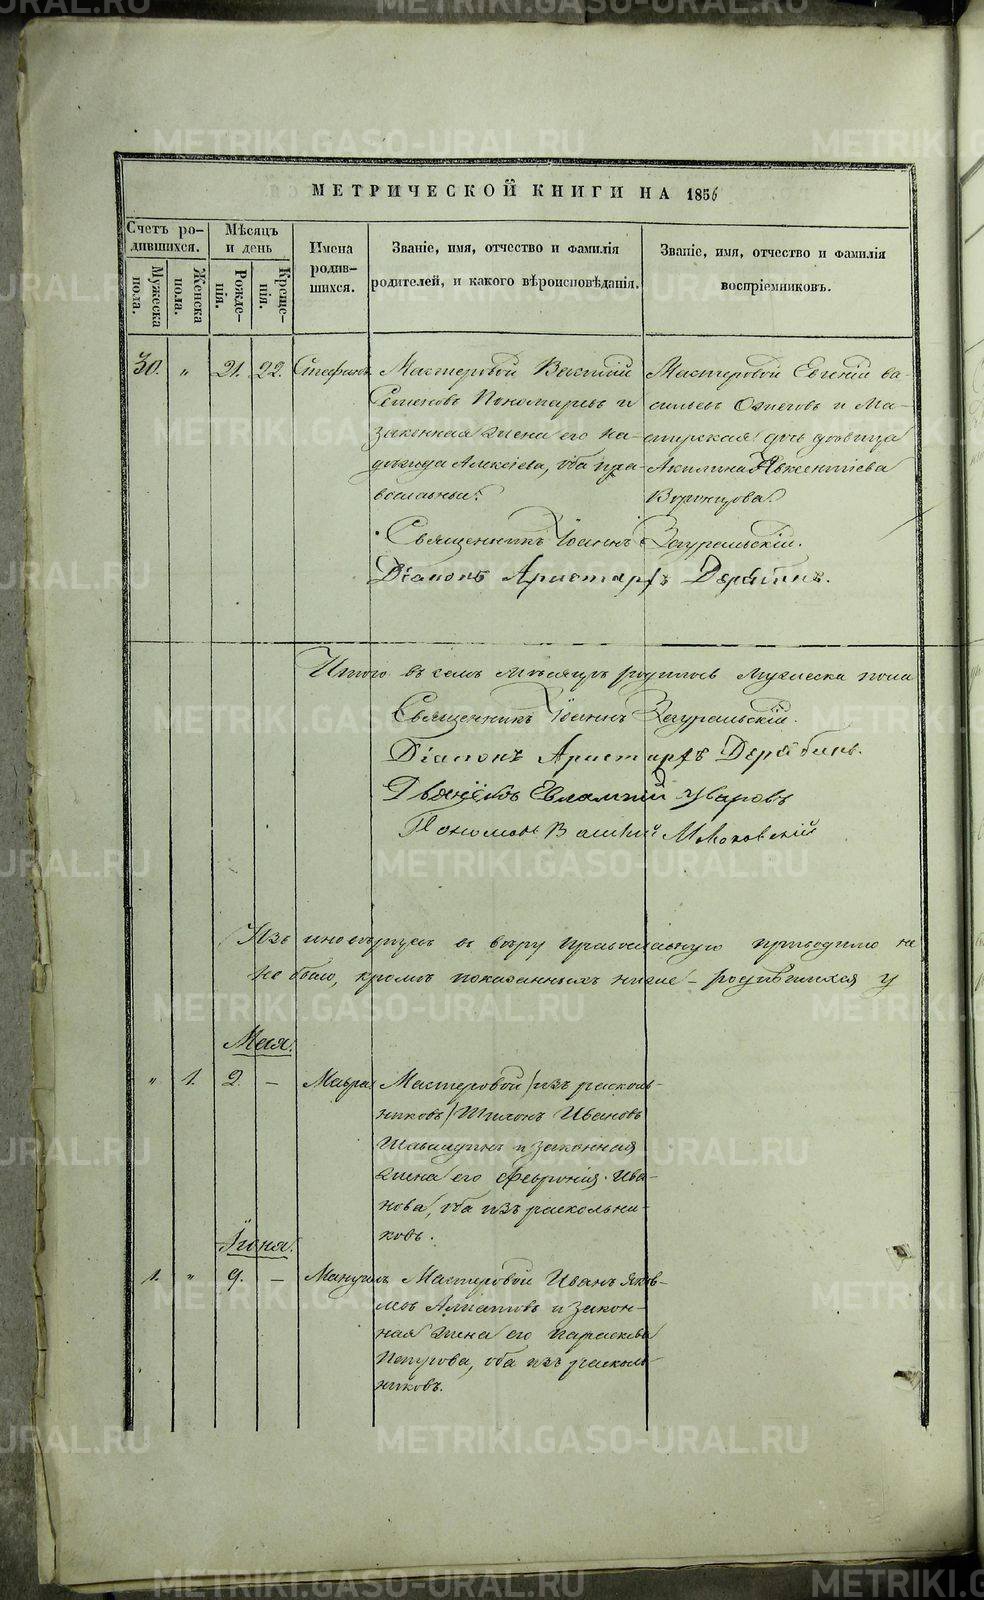 МЕТРИЧЕСКОЙ КНИГИ НА 1856
Счетъ ро-
дившихся.
Мужеска
пола.
Женска
пола.
Мѣсяцъ
и день
Рожде-
нія.
Креще-
нія.
Имена
родив-
шихся.
Званіе, имя, отчество и фамилія
родителей, и какого вѣроисповѣданія.
Званіе, имя, отчество и фамилія
воспріемниковъ.
30. " 21. 22. Стефанъ
Мастеровой Василій
Семеновъ Пономаревъ и
законная жена его На-
дежда Алексіева, оба пра-
вославные.
Мастеровой Евгеній Ва-
сильевъ Ожеговъ и Ма-
стерская дочь девица
Акилина Авксентіева
Воронцова.
Священникъ Іоаннъ Зауральскій.
Діаконъ Аристархъ Дерябинъ.
Итого въ семъ мѣсяцѣ родилось мужеска пола
Священникъ Іоаннъ Зауральскій.
Діаконъ Аристархъ Дерябинъ.
Дьячёкъ Евлампій Уваровъ
Пономарь
Изъ иновѣрцевъ въ вѣру Православную приводимо не
не было, кромѣ показанныхъ ниже – родившихся у
Мая.
" 1. 2. – Мавра
Мастеровой /изъ расколь-
никовъ/ Иванов
и законная
жена его Феврония Ива-
нова, оба изъ раскольни-
ковъ.
Іюня.
1. " 9. – Мануилъ
Мастеровой Иванъ Яков-
левъ и закон-
ная жена его Параскева
Петрова, оба изъ расколь-
никовъ.
METRIKI.GASO-URAL.RU